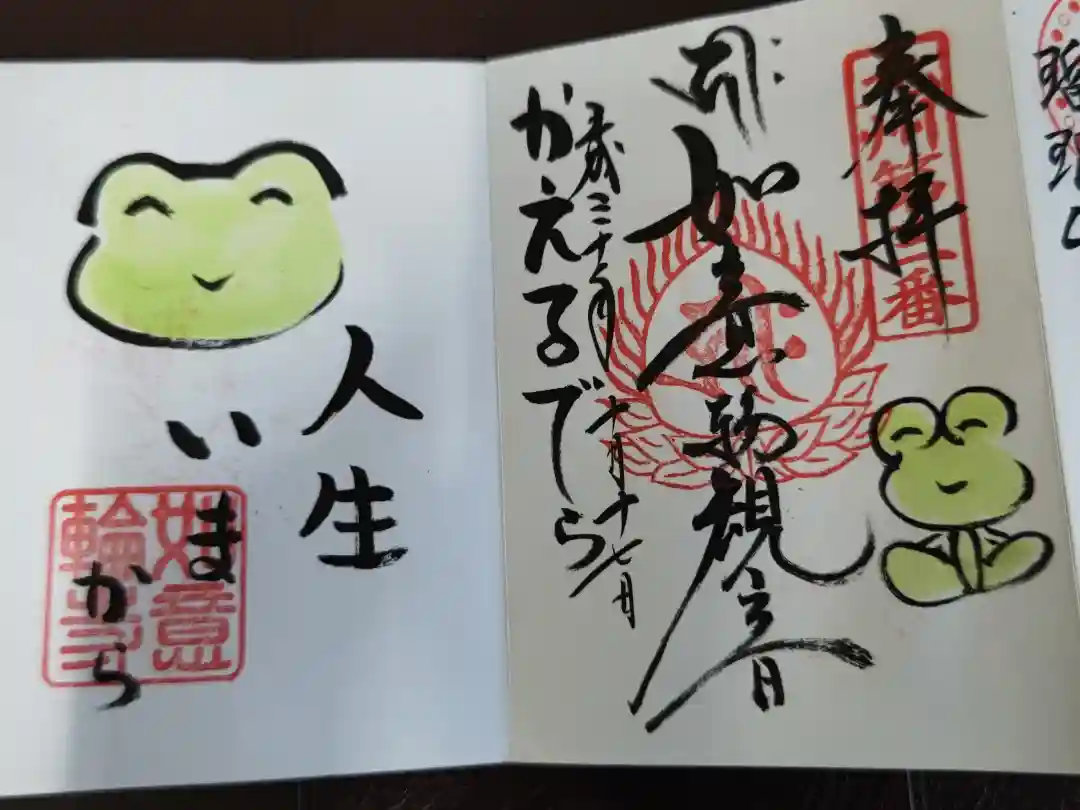 奉拝
如意輪観音
平成三十年
十月十七日
かえるでら
人生
いまから
如意
輪寺